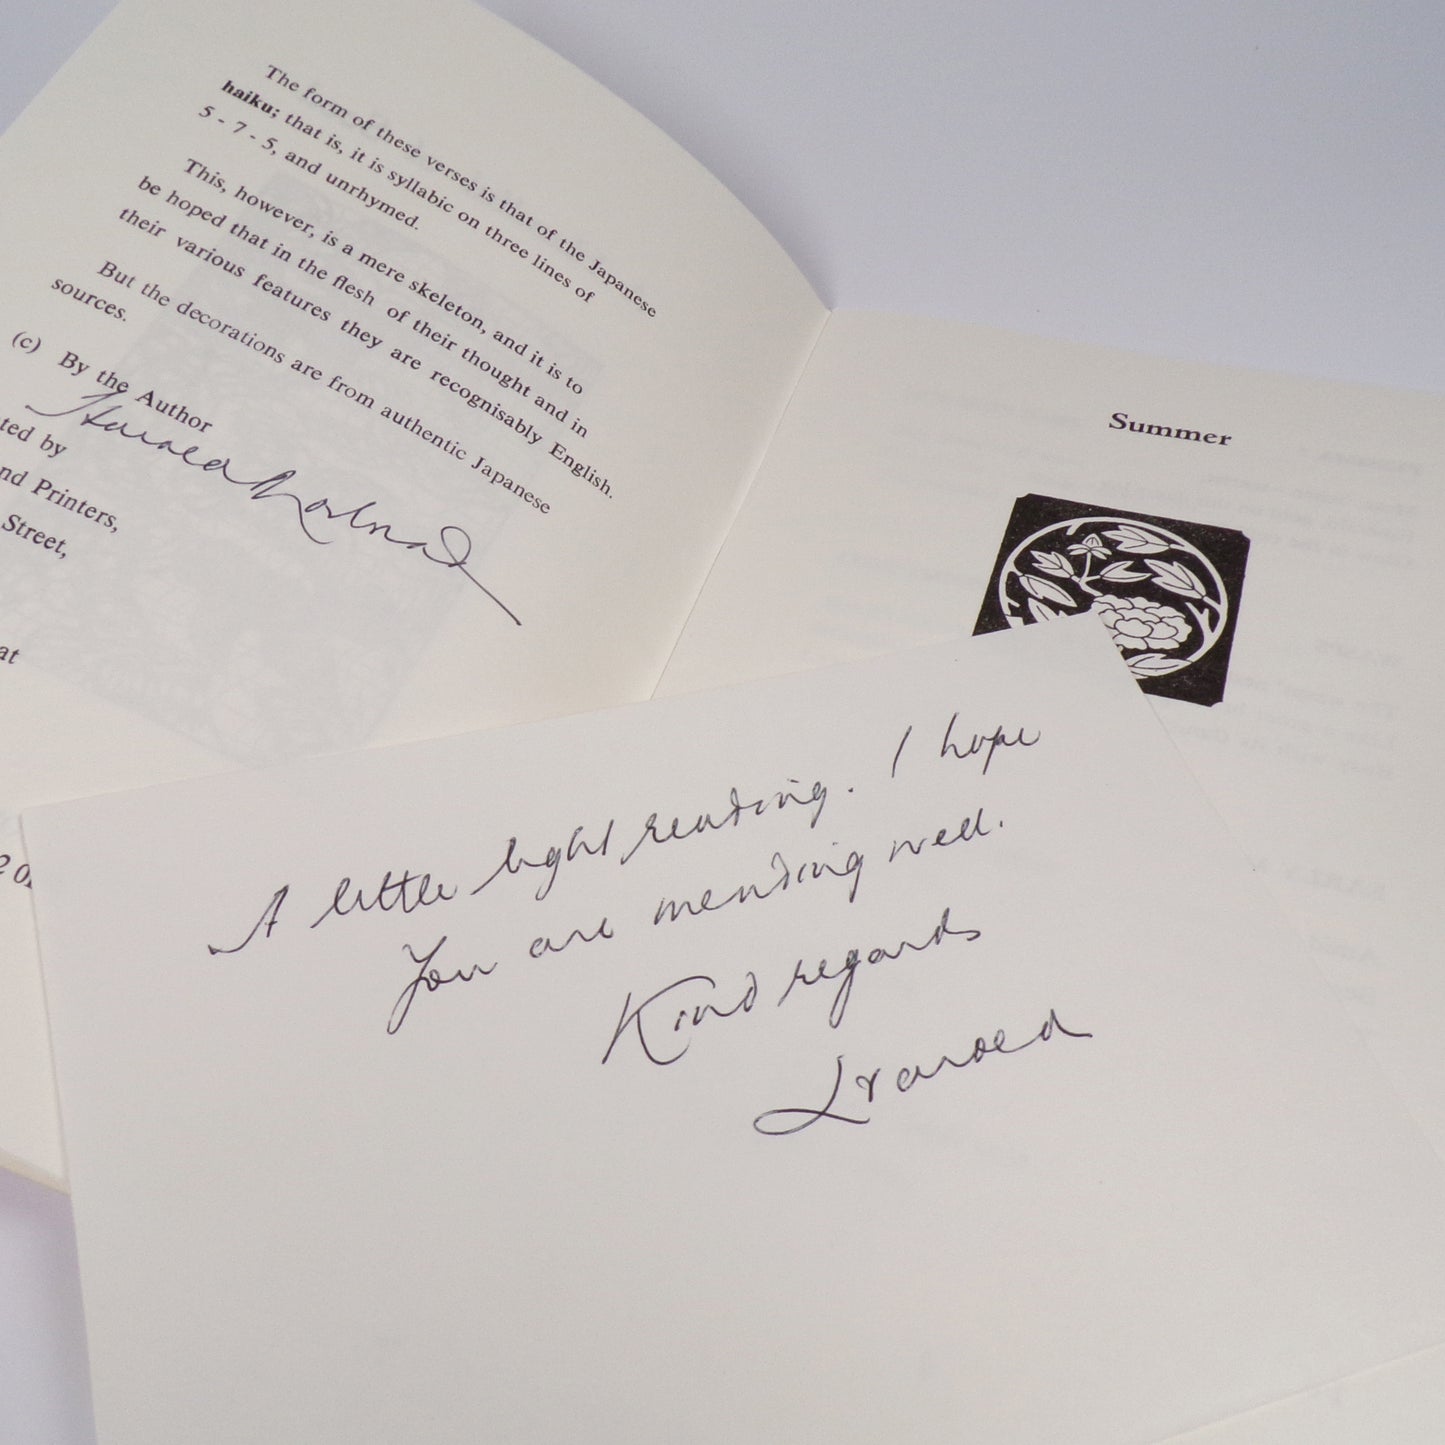 The form of these verses is that of the Japanese
haiku; that is, it is syllabic on three lines of
5 - 7 - 5, and unrhymed.
This, however, is a mere skeleton, and it is to
be hoped that in the flesh of their thought and in
their various features they are recognisably English.
But the decorations are from authentic Japanese
sources.
(c) By the Author
ted by
nd Printers,
Street,
at
Summer
A little light reading. I hope
You are mending well.
Kind regards